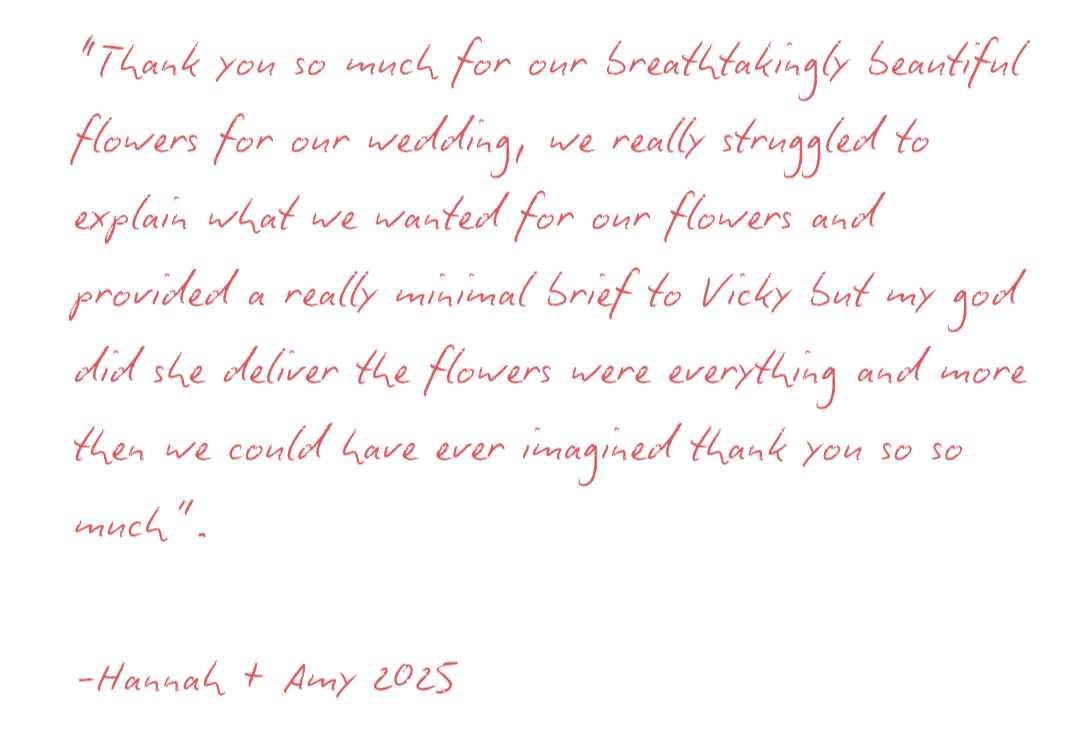 "Thank you so much for our breathtakingly beautiful
flowers for our wedding, we really struggled to
explain what we wanted for our flowers and
provided a really minimal brief to Vicky but my god
did she deliver the flowers were everything and more
then we could have ever imagined thank you so so
much".
-Hannah + Amy 2025